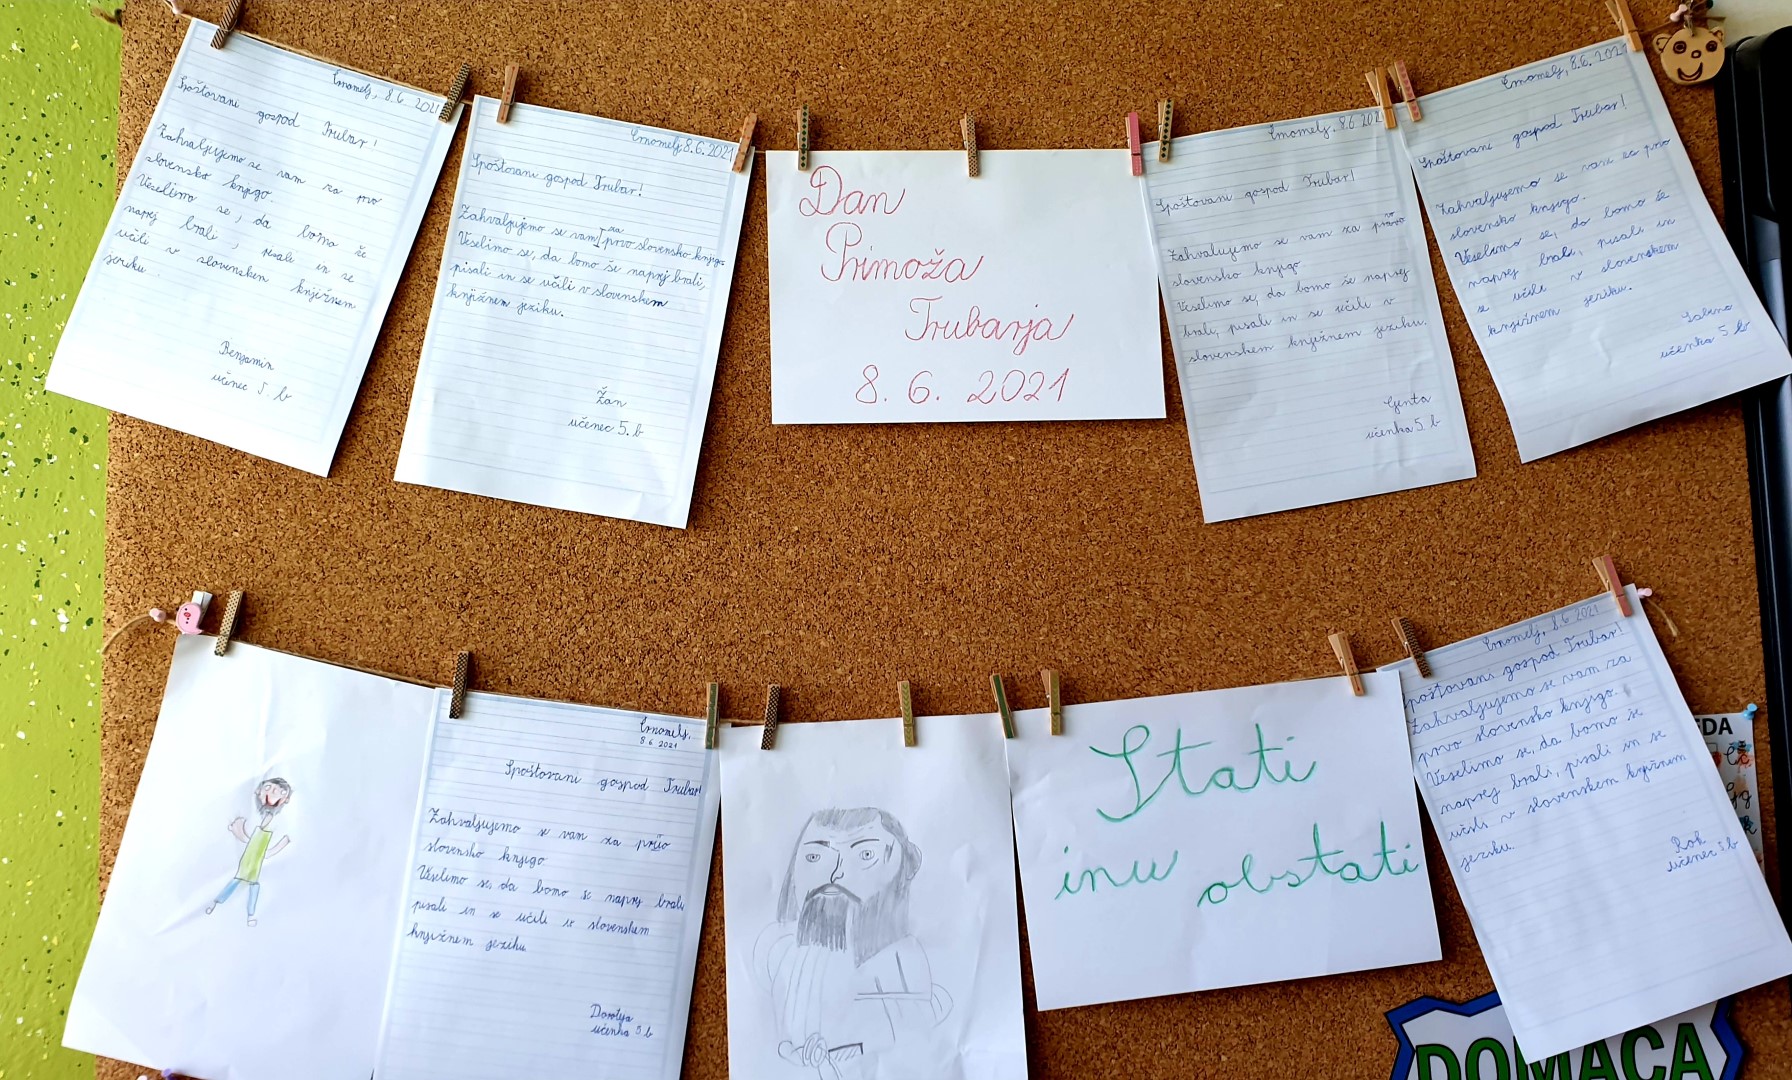 Črnomelj, 8.6. 2021
Spoštovani
gospod Trubar!
Zahvaljujemo se vam za prvo
slovensko knjigo.
Veselimo se, da bomo še
naprej brali, pisali in se
učili v slovenskem knjižnem
jeziku.
Benjamin
učenec 5. b
Črnomelj 8. 6. 2021
Spoštovani gospod Trubar!
Zahvaljujemo se vam za prvo slovensko knjigo.
Veselimo se, da bomo še naprej brali,
pisali in se učili v slovenskem
knjižnem jeziku.
Žan
učenec 5. b
Dan
Primoža
Trubarja
8. 6. 2021
Črnomelj. 8.6 2021
Spoštovani gospod Trubar!
Zahvalujemo se vam za prvo
slovensko knjigo
Veselimo se, da bomo še naprej
brali, pisali in se učili v
slovenskem knjižnem jeziku.
Genta
učenka 5. b
Črnomelj, 8.6. 2021
Spoštovani gospod Trubar!
Zahvaljujemo se vam za prvo
slovensko knjigo.
Veselimo se, da bomo še
naprej brali, pisali in
se učili v slovenskem
knjižnem jeziku.
učenka 5. b
Črnomelj,
8. 6 2021
Spoštovani gospod Trubar!
Zahvaljujemo se vam za prvo
slovensko knjigo
Veselimo se, da bomo še naprej brali
pisali in se učili v slovenskem
knjižnem jeziku
Dorotja
učenka 5. b
Stati
inu obstati
Črnomelj, 8. 6 2021
spoštovani gospod Trubar!
Zahvaljujemo se vam za
prvo slovensko knjigo.
Veselimo se, da bomo še
naprej brali, pisali in se
učili v slovenskem knjižnem
jeziku
Rok
učenec 5. b
EDA
DOMAČA